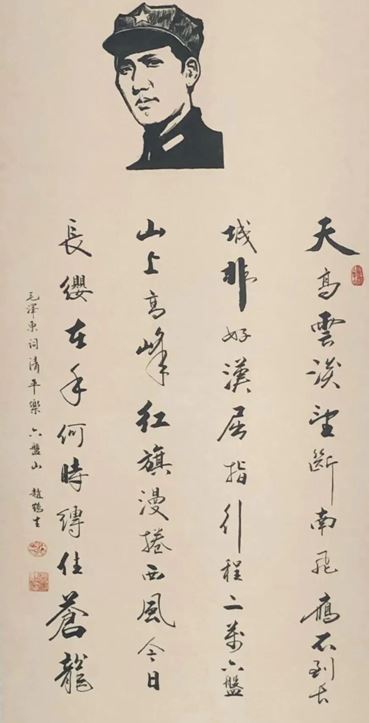 天高雲淡望斷南飛鴈不到长
城非好漢屈指行程二萬六盤
山上高峰红旗漫捲西風今日
長纓在手何時縛住蒼龍
毛澤東词清平樂六盤山